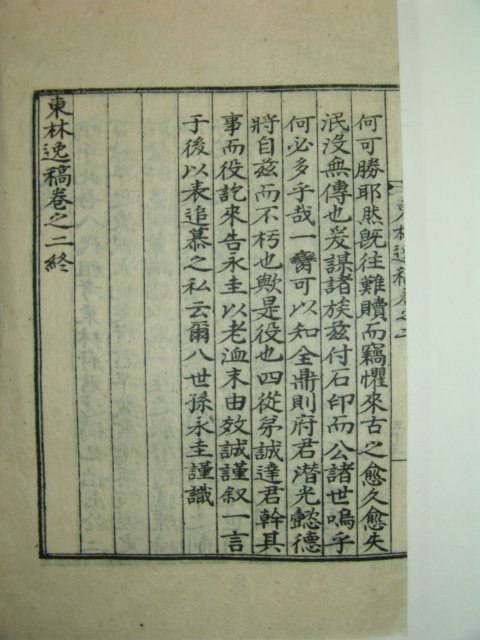 東林逸稿卷之二
何可勝耶然旣往難贖而竊懼來古之愈久愈失
泯沒無傳也爰謀諸族玆付石印而公諸世嗚乎
何必多乎哉一臠可以知全鼎則府君潛光懿德
將自玆而不朽也歟是役也四從弟誠達君幹其
事而役訖來告永圭以老洫末由效誠謹叙一言
于後以表追慕之私云爾八世孫永圭謹識
東林逸稿卷之二終